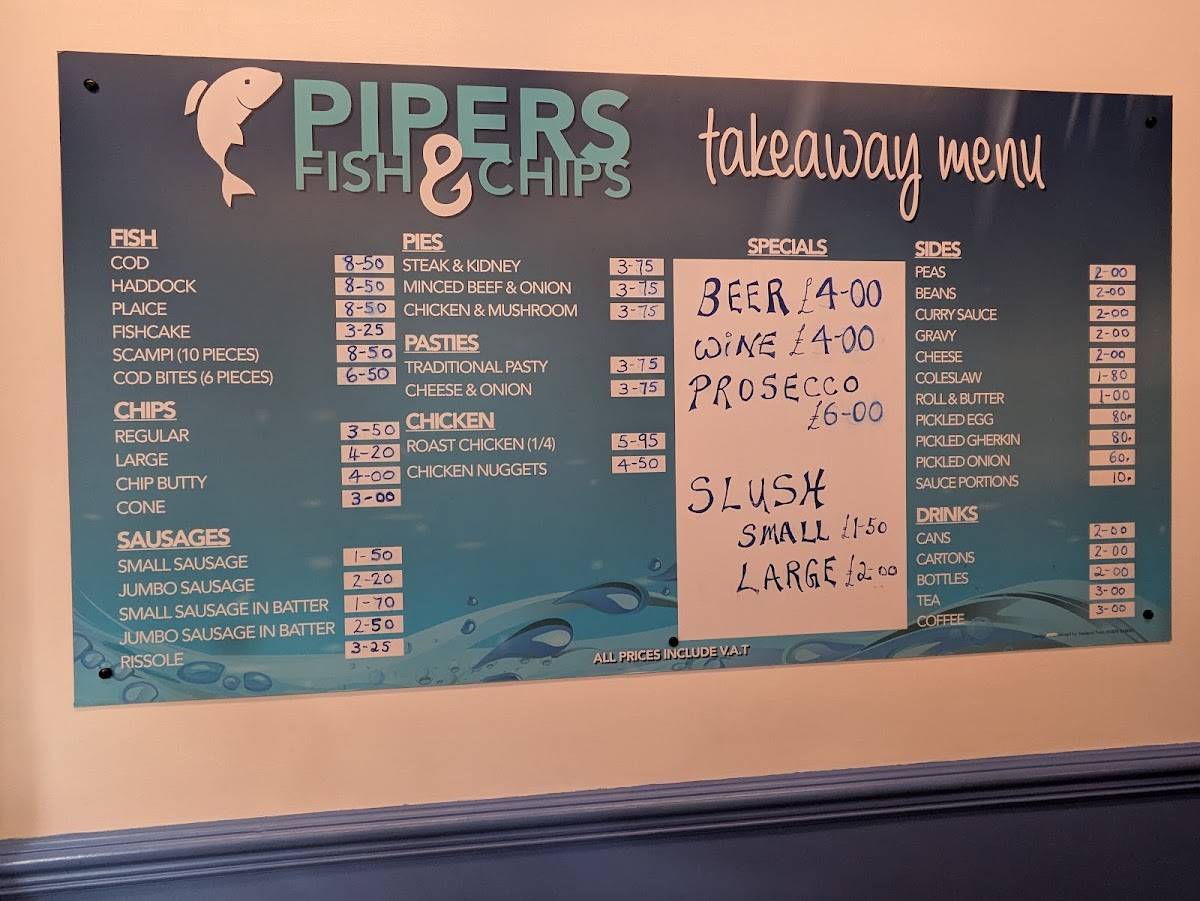 PIPERS
FISH & CHIPS
takeaway menu
FISH
COD 8-50
HADDOCK 8-50
PLAICE 8-50
FISHCAKE 3-25
SCAMPI (10 PIECES) 8-50
COD BITES (6 PIECES) 6-50
CHIPS
REGULAR 3-50
LARGE 4-20
CHIP BUTTY 4-00
CONE 3-00
SAUSAGES
SMALL SAUSAGE 1-50
JUMBO SAUSAGE 2-20
SMALL SAUSAGE IN BATTER 1-70
JUMBO SAUSAGE IN BATTER 2-50
RISSOLE 3-25
PIES
STEAK & KIDNEY 3-75
MINCED BEEF & ONION 3-75
CHICKEN & MUSHROOM 3-75
PASTIES
TRADITIONAL PASTY 3-75
CHEESE & ONION 3-75
CHICKEN
ROAST CHICKEN (1/4) 5-95
CHICKEN NUGGETS 4-50
SPECIALS
BEER £4-00
WINE £4-00
PROSECCO
£6-00
SLUSH
SMALL £1-50
LARGE £2-00
SIDES
PEAS 2-00
BEANS 2-00
CURRY SAUCE 2-00
GRAVY 2-00
CHEESE 2-00
COLESLAW 1-80
ROLL & BUTTER 1-00
PICKLED EGG 80p
PICKLED GHERKIN 80p
PICKLED ONION 60p
SAUCE PORTIONS 10p
DRINKS
CANS 2-00
CARTONS 2-00
BOTTLES 2-00
TEA 3-00
COFFEE 3-00
ALL PRICES INCLUDE V.A.T